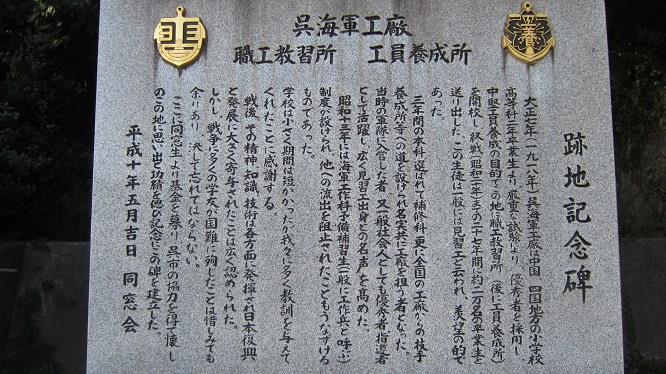 呉海軍工廠
職工教習所 工員養成所
跡地記念碑
大正七年(一九一八年)呉海軍工廠は中国、四国地方の小学校
高等科二年卒業生より、厳密な試験により、優秀者を採用し
中堅工員養成の目的でこの地に職工教習所(後に工員養成所)
を開校し、終戦(昭和二十年)までの二十七年間に約二万名の卒業生を
送り出した。この生徒は一般には見習工と云われ、羨望の的で
あった。
三年間の本科、選ばれて補修科、更に全国の工廠からの技手
養成所等への道も設けられ名実共に工廠を担う者となった。
当時の軍隊に入合した者、又一般社会人としても優秀者、指導者
として活躍し、広く見習工出身との名声を高めた。
昭和十三年には海軍工作科予備補習生(一般に工作兵と呼ぶ)
制度が設けられ、他への流出を阻止されたこともうなずける
ものであった。
学校は小さく期間は短かかったが我々に多く教訓を与えて
くれたことに感謝する。
戦後、その精神、知識、技術は各方面で発揮され日本復興
と発展に大きく寄与されたことは広く認められた。
しかし戦争で多くの学友が国難に殉じたことは惜みても
余りあり、決して忘れてはならない。
ここに同窓生より基金を募り、呉市の協力を得て懐し
のこの地に思い出と功績を偲び記念にこの碑を建立した。
平成十年五月吉日 同窓会